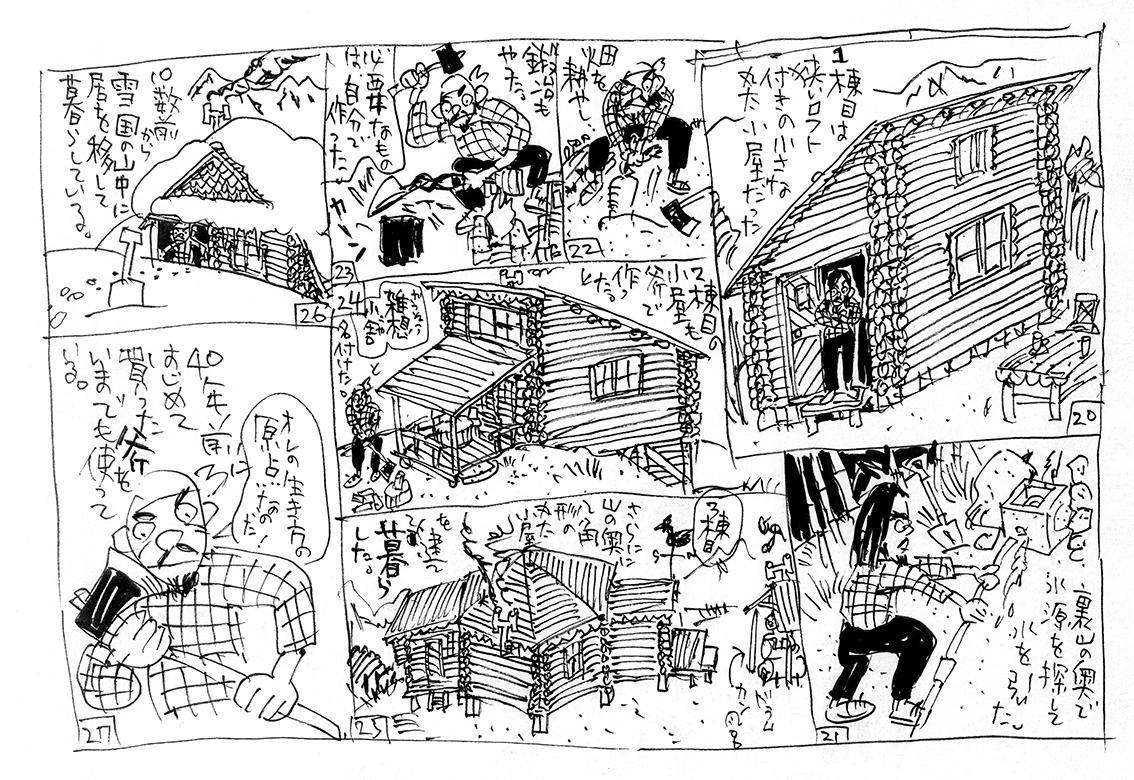 1棟目は
狭いロフト
付きの小さな
丸太小屋だった
20
裏山の奥で
水源を探して
水を引いた。
21
畑を
耕やし、
22
鍛冶も
やった。
必要なもの
は、自分で
作った。
23
2棟目の
小屋も
斧で
作っ
た。
雑想
小舎
と
名付けた。
24
3棟目
さらに
山の奥
に八角
形の
丸太
小屋
を建て
暮ら
した。
ドラム
カン風呂
25
10数年前
から
雪国の山中に
居を移して
暮らしている。
26
40年前
はじめて
買った斧を
いまでも使って
いる。
オレの生き方の
原点なのだ!
27